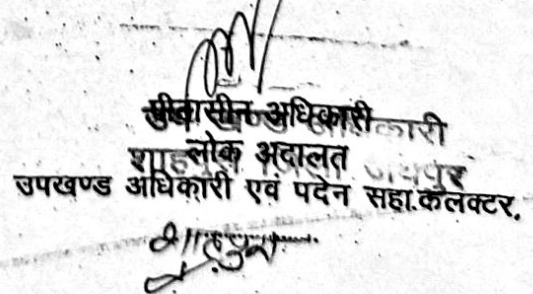 पीठासीन अधिकारी
लोक अदालत
उपखण्ड अधिकारी एवं पदेन सहा.कलक्टर,
शाहपुरा